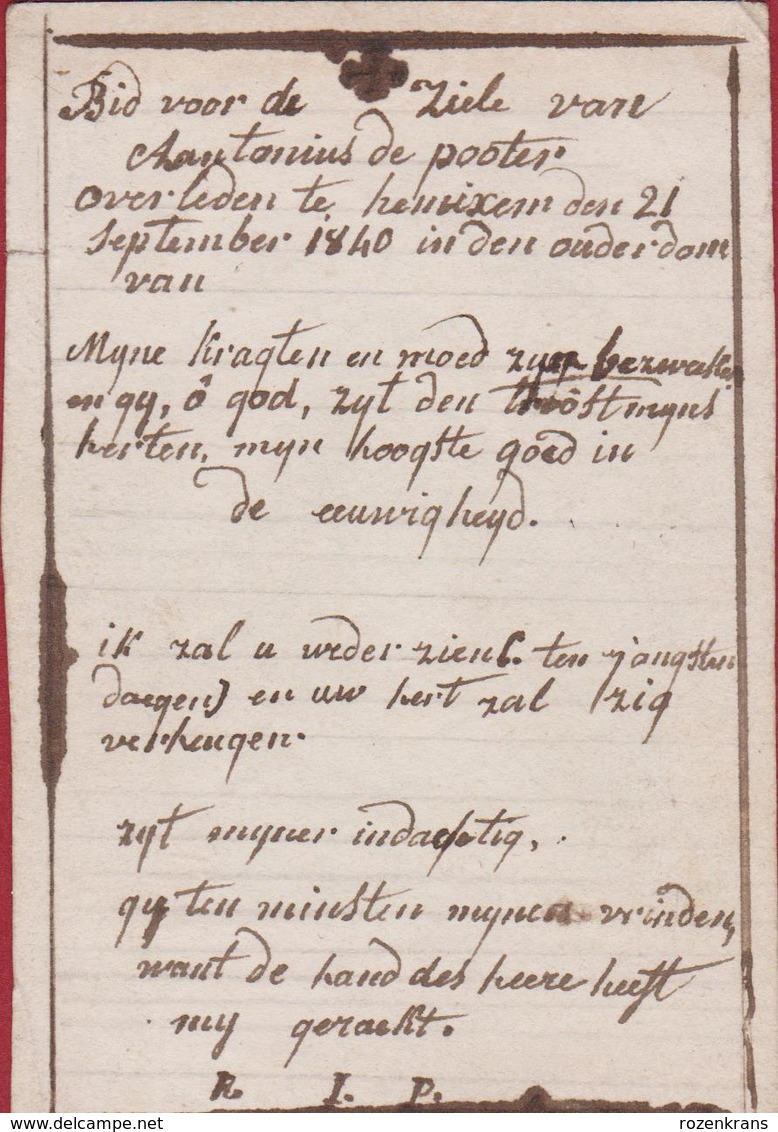 Bid voor de Ziele van
Antonius de pooter
overleden te hemixem den 21
september 1840 in den ouderdom
van
Myne kragten en moed zyn bezweken
en gy, ô god, zyt den troôst myns
herten, myn hoogste goed in
de eeuwigheyd.
ik zal u weder zien (ten jongsten
daegen) en uw hert zal zig
verheugen.
zyt myner indachtig,
gy ten minsten myne vrinden,
want de hand des heere heeft
my geraekt.
R. I. P.
rozenkrans
www.delcampe.net